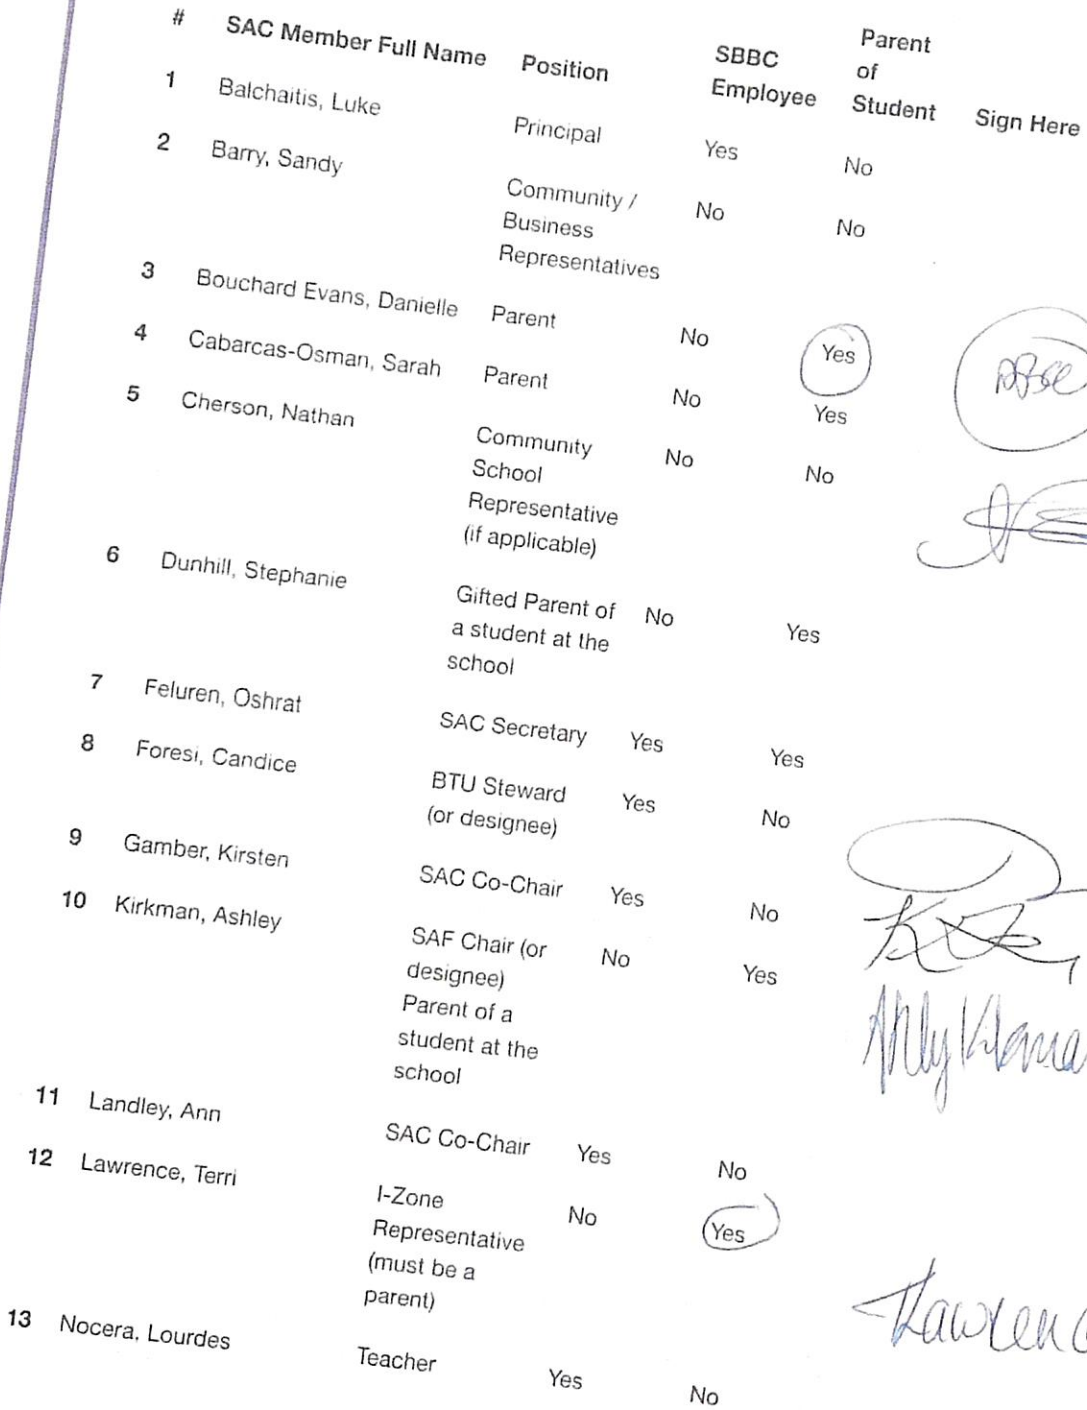 # SAC Member Full Name Position SBBC Employee Parent of Student Sign Here
1 Balchaitis, Luke Principal Yes No
2 Barry, Sandy Community / Business Representatives No No
3 Bouchard Evans, Danielle Parent No Yes
4 Cabarcas-Osman, Sarah Parent No Yes
5 Cherson, Nathan Community School Representative (if applicable) No No
6 Dunhill, Stephanie Gifted Parent of a student at the school No Yes
7 Feluren, Oshrat SAC Secretary Yes Yes
8 Foresi, Candice BTU Steward (or designee) Yes No
9 Gamber, Kirsten SAC Co-Chair Yes No
10 Kirkman, Ashley SAF Chair (or designee) Parent of a student at the school No Yes
11 Landley, Ann SAC Co-Chair Yes No
12 Lawrence, Terri I-Zone Representative (must be a parent) No Yes
13 Nocera, Lourdes Teacher Yes No